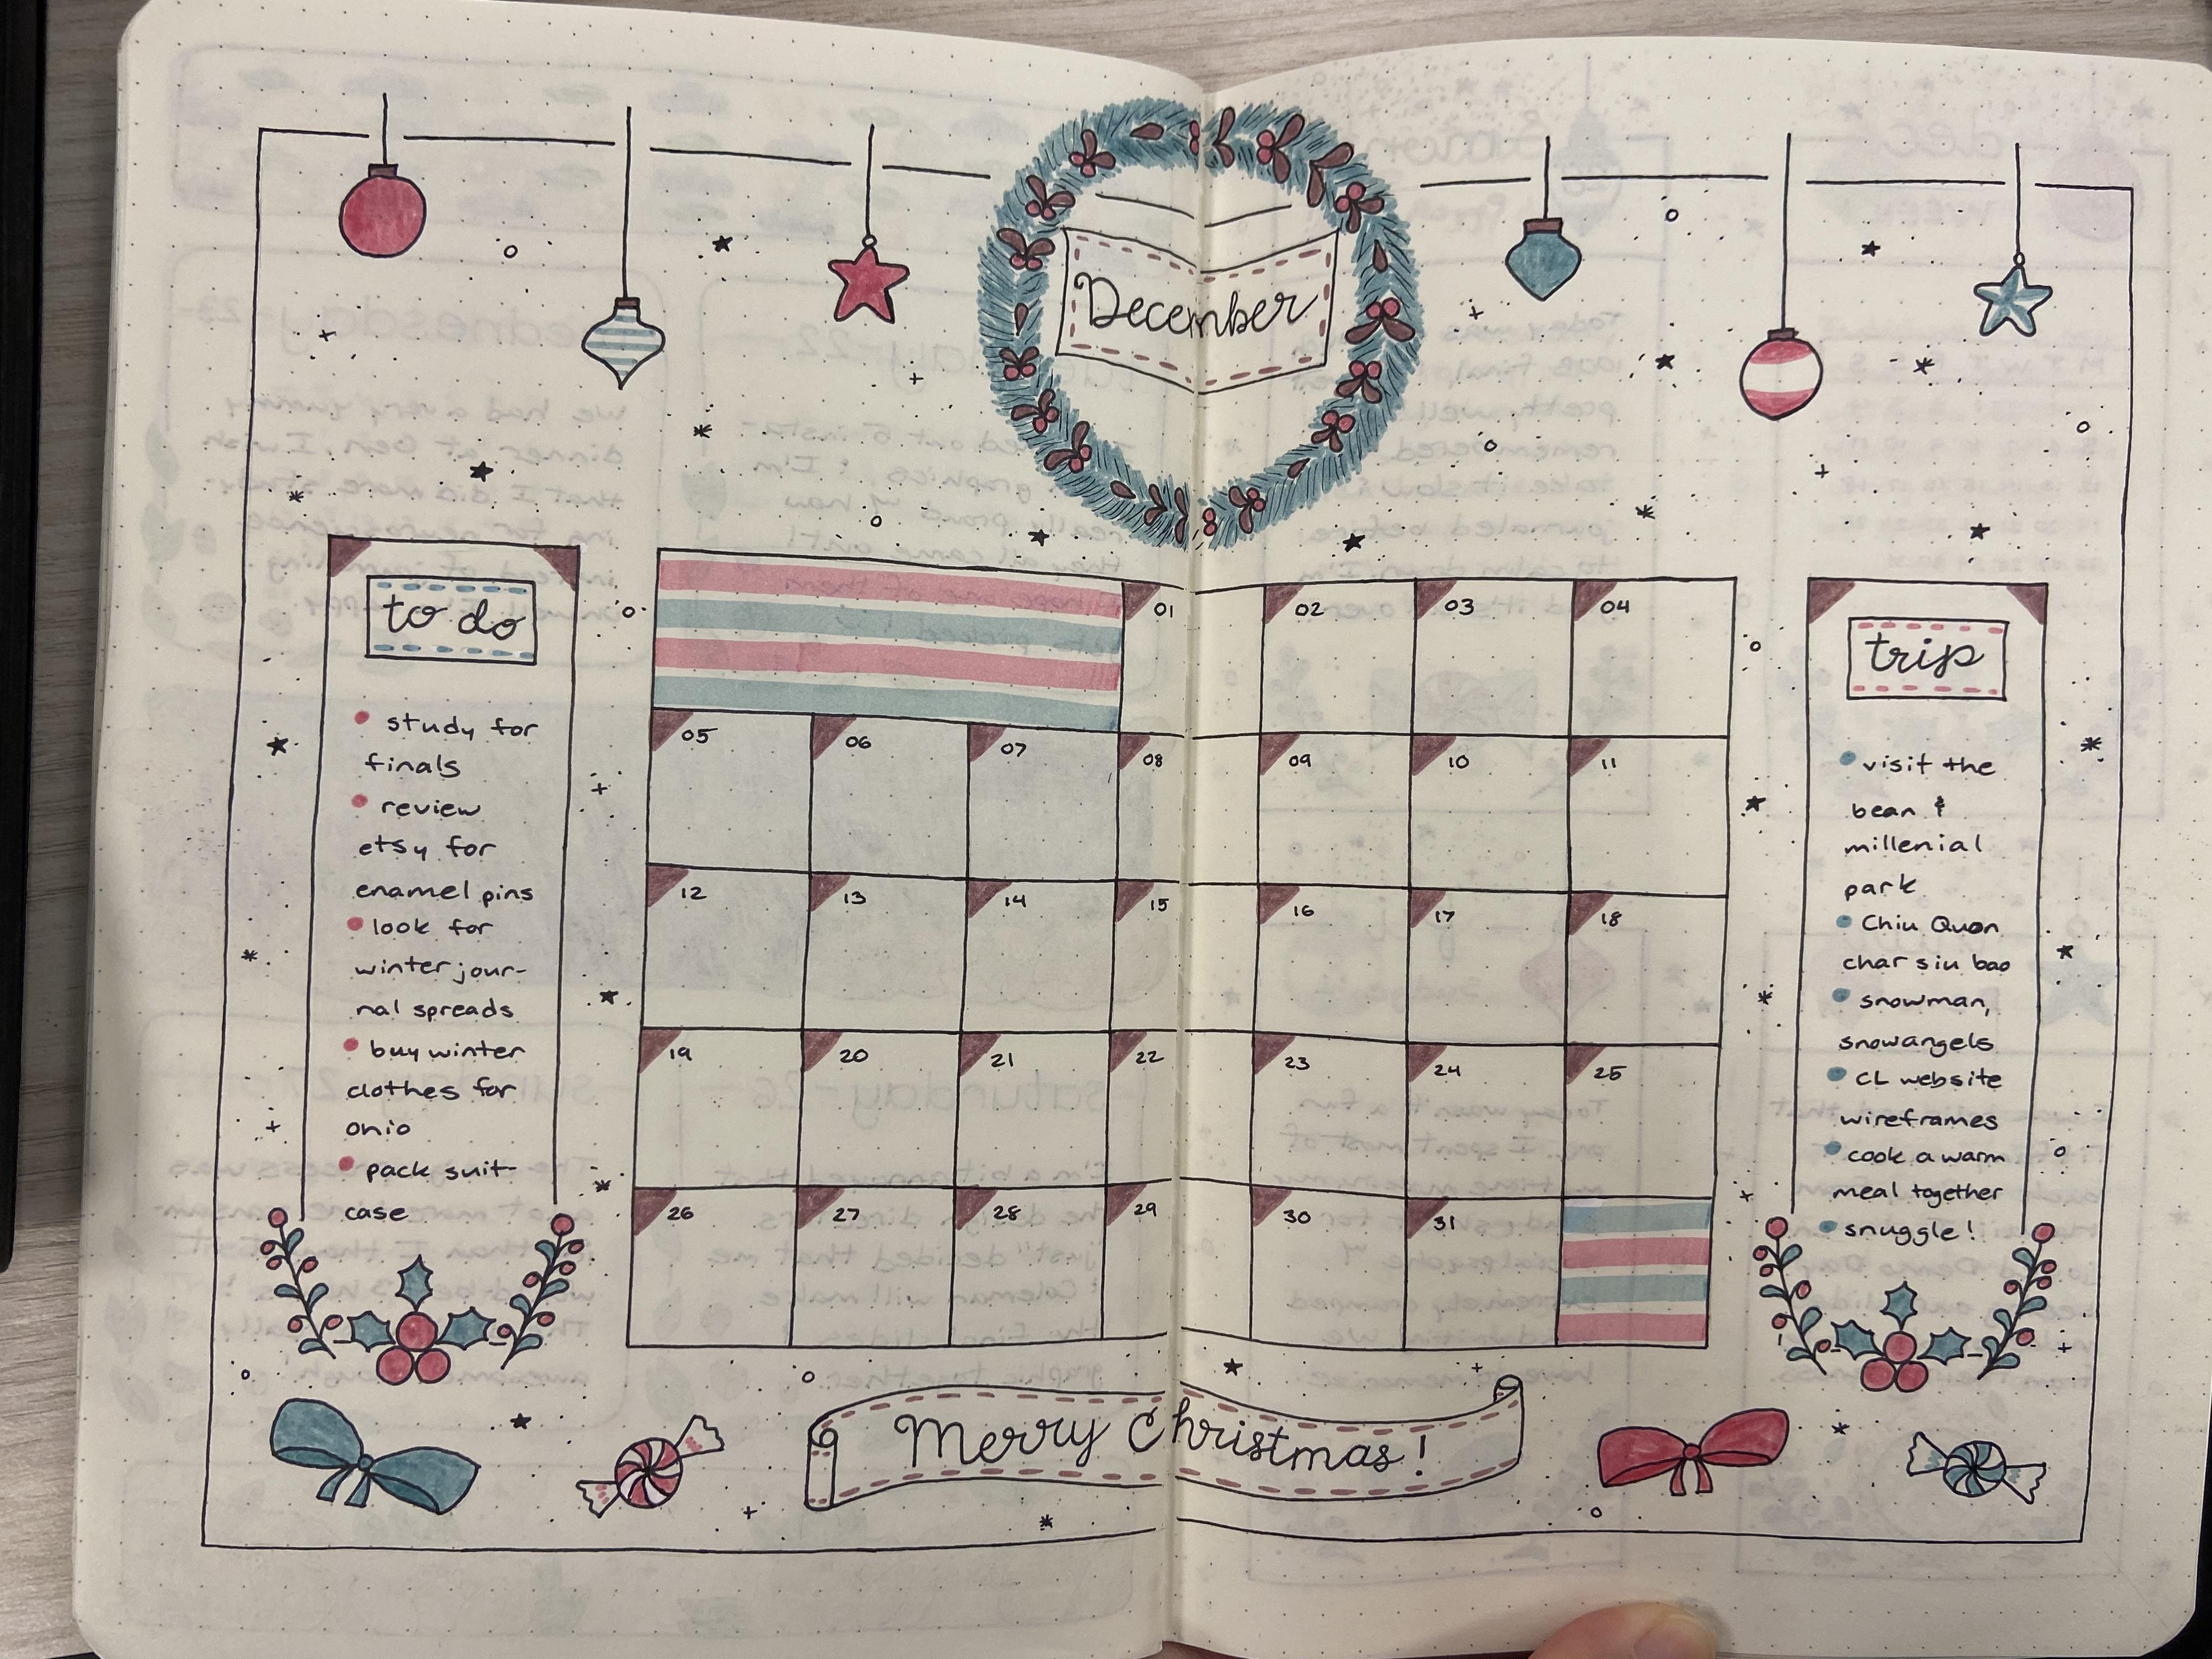 December
to do
study for
finals
review
etsy for
enamel pins
look for
winter jour-
nal spreads
buy winter
clothes for
ohio
pack suit-
case
01 02 03 04
05 06 07 08 09 10 11
12 13 14 15 16 17 18
19 20 21 22 23 24 25
26 27 28 29 30 31
trip
visit the
bean &
millenial
park
Chiu Quon
char siu bao
snowman,
snowangels
CL website
wireframes
cook a warm
meal together
snuggle!
Merry Christmas!